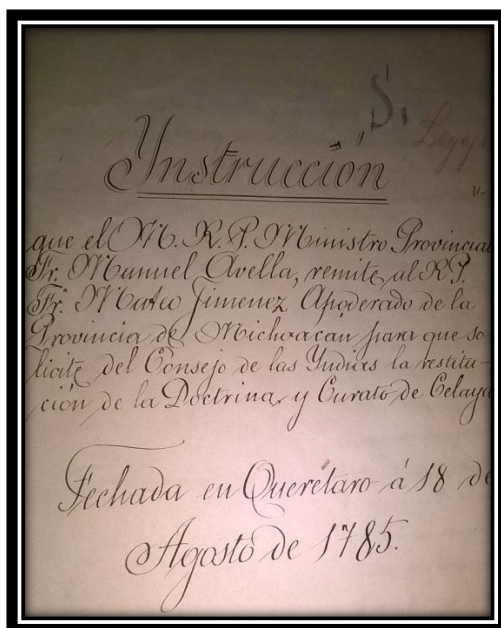 S.
Ynstrucción
que el M. R. P. Ministro Provincial
Fr. Manuel Avella, remite al R. P.
Fr. Mateo Jimenez Apoderado de la
Provincia de Michoacán para que so-
licite del Consejo de las Yndias la restitu-
ción de la Doctrina y Curato de Celaya
Fechada en Querétaro á 18 de
Agosto de 1785.